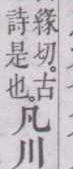 緣切。古
詩是也。
凡川